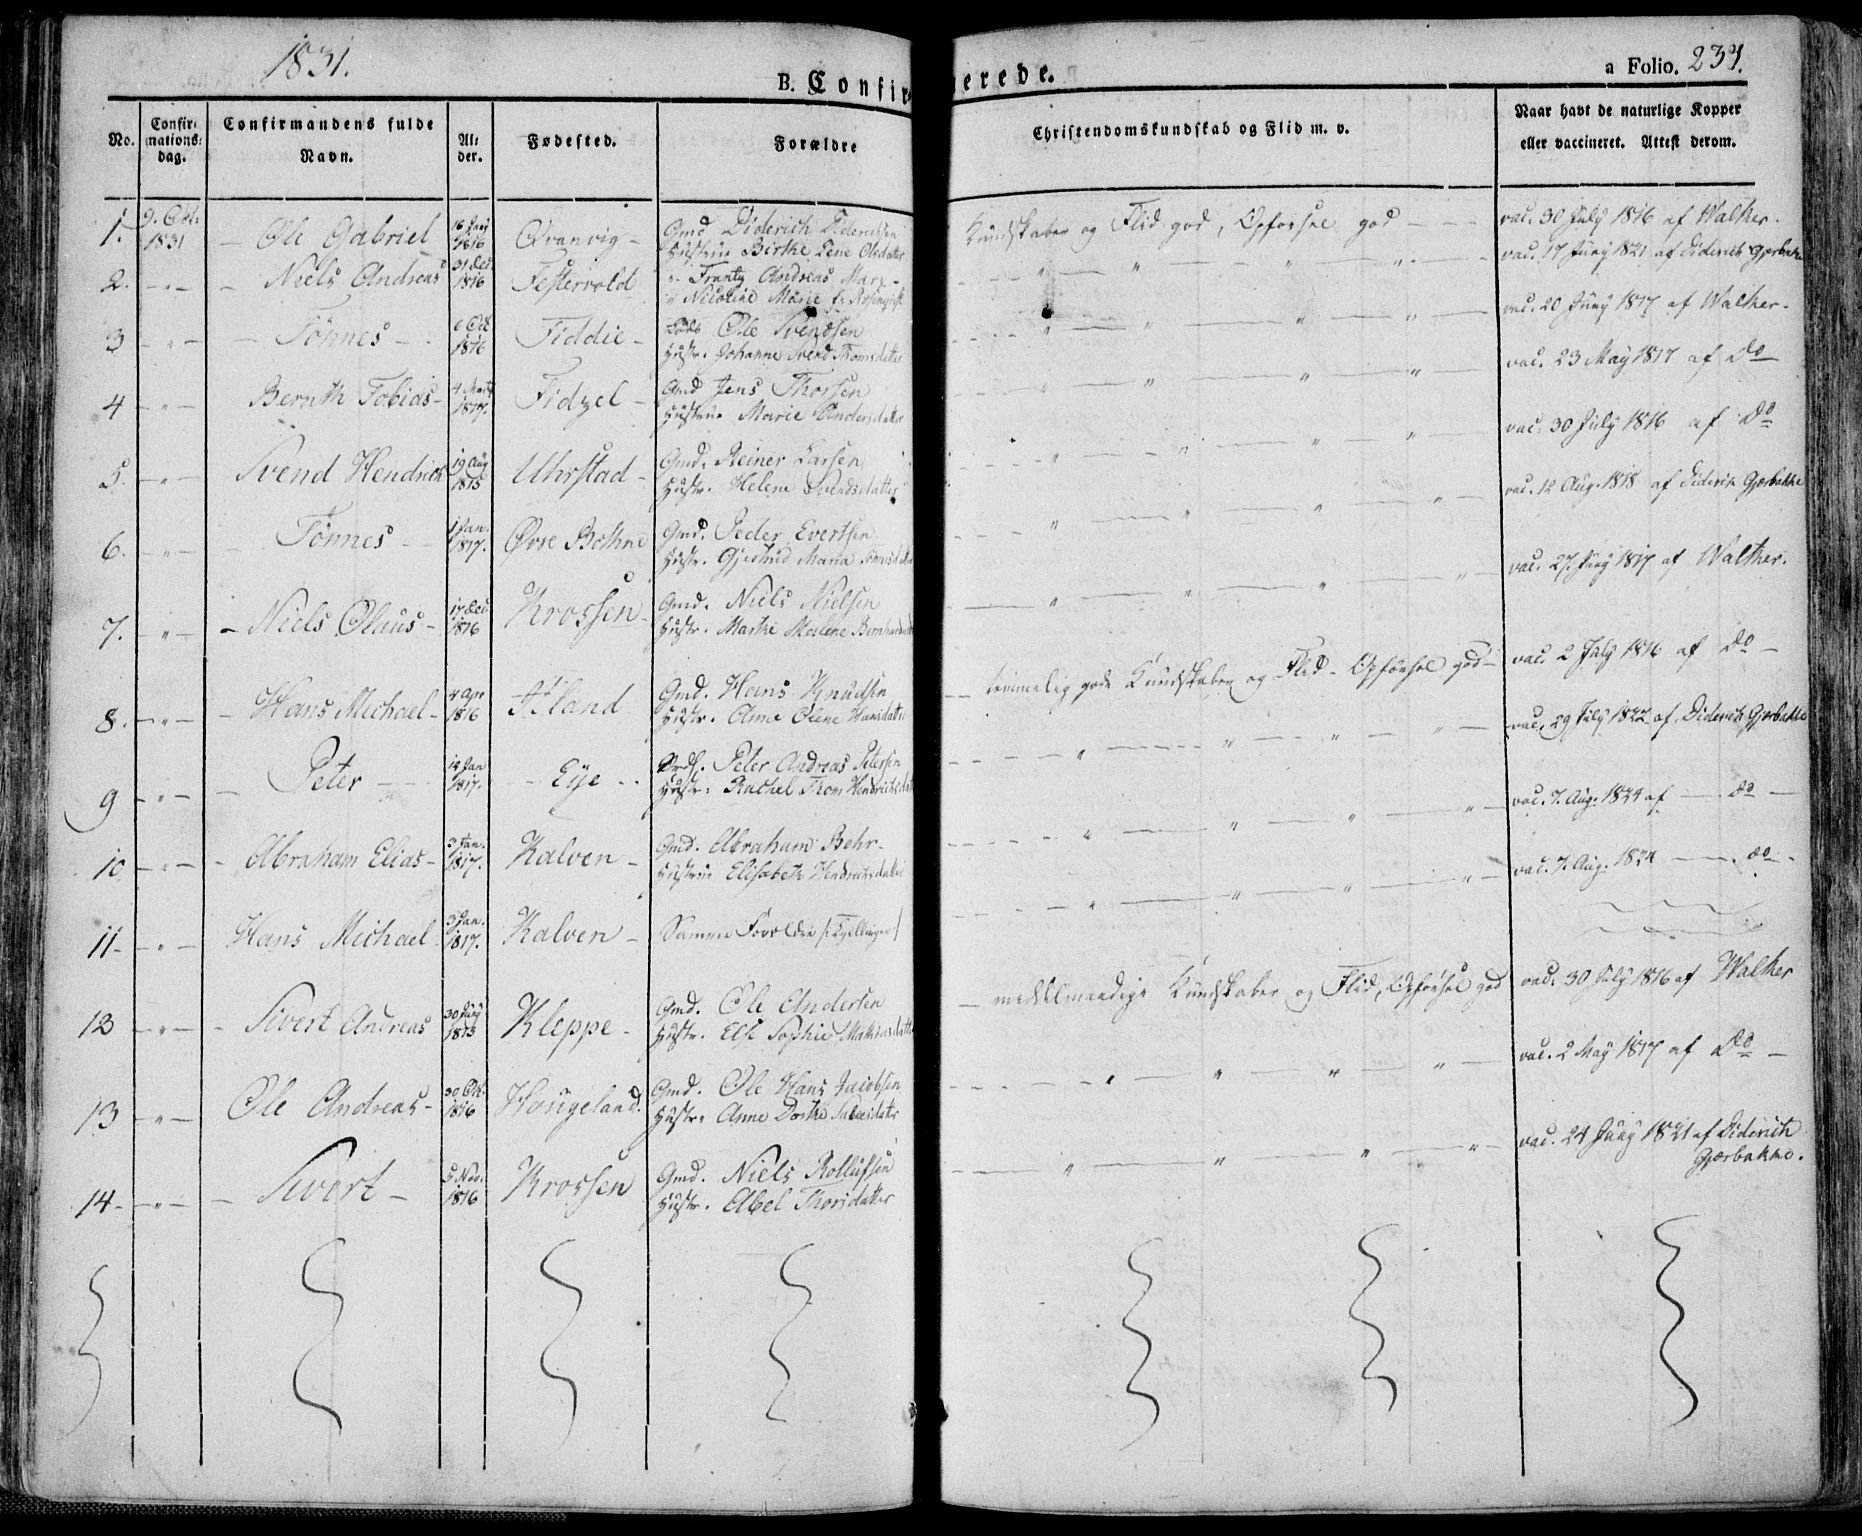 1831.
B. Confirmerede.
a Folio. 231.
No.
Confirmations-dag.
Confirmandens fulde Navn.
Alder.
Fødested.
Forældre
Christendomskundskab og Flid m. v.
Naar havt de naturlige Kopper eller vaccineret. Attest derom.
1. 9. Oct. 1831 – Ole Gabriel 1816 Qvanvig – Gmd Diderich Didrichsen
Hustrue Birthe Lene Olsdatter
Kundskaber og Flid god, Opførsel god – – – vac. 30 July 1816 af Walther.
2. – " – – Niels Andreas 31 Dec. 1816 Festervold " Frantz Andreas Marx –
" Nicoline Marie f.
" – " – " – " – vac. 17 Juny 1821 af Diderich Gjerbakke
3 – " – – Tönnes – 6 Oct 1816 Fiddie – Ole Svendsen
Hustr. Johanne Svend Thomsdatter
" – " – " – " – vac. 20 Juny 1817 af Walther.
4 – " – Bernth Tobias – 4 Marty 1817. Fidzel – Gmd Jens Thorsen
Hustrue Marie Andersdatter
" – " – " – " – vac. 23 May 1817 af Do
5. – " – Svend Hendrich 19 Aug 1815 Uhrstad – Gmd. Reiner Larsen
Hustr. Helene Svendsdatter
" – " – " – " – vac. 30 July 1816 af Do
6. – " – – Tönnes – 1 Jan. 1817. Øvre Bothne Gmd. Peder Evertsen
Hustr. Gjertrud Maria
" – " – " – vac. 12 Aug. 1818 af Diderik Gjerbakke
7. – " – – Niels Olaus – 17 Dec 1816 Krossen – Gmd. Niels Nielsen
Hustr. Marthe Malene
" – " – " – " – vac. 27. Juny 1817 af Walther.
8. – " – – Hans Michael – 4 Apr 1816 Gmd. Hans Knudsen
Hustr. Anne Olene Hansdatter
– temmelig gode Kundskaber og Flid – Opførsel god – vac. 2 July 1816 af Do –
9 – " – – Peter – 12 Jan 1817. – Eye – Peter Andreas Petersen
Hustr. Rachel Thom Hendrichsdatter
" – " – " – " – vac. 29 July 1822 af Diderich Gjerbakke
10 – " – – Abraham Elias – 3 Jan. 1817. Kalven – Gmd. Abraham Behr –
Hustrue Elisabeth Hendrichsdatter
" – " – " – " – vac. 7. Aug. 1824 af – do –
11 – " – Hans Michael 3 Jan. 1817. Kalven – Samme Forældre /: Tvillinger :/
" – " – " – " – vac. 7. Aug. 1824 – do –
12 – " – – Sivert Andreas 1815 Kleppe – Gmd. Ole Andersen
Hustr. Else Sophie Mathiasdatter
– middelmaadige Kundskaber og Flid, Opførsel god vac. 30 July 1816 af Walther
13 – " – Ole Andreas – 30 Oct. 1816 Haugeland. Gmd. Ole Hans Jacobsen
Hustr. Anne Dorthe
" – " – " – " – vac. 2 May 1817 af Do –
14 – " – – Sivert – 5 Nov. 1816 Krossen Gmd. Niels Rollufsen
Hustr. Abel Thorsdatter
" – " – " – " – vac. 24 Juny 1821 af Diderich
Gjerbakke.